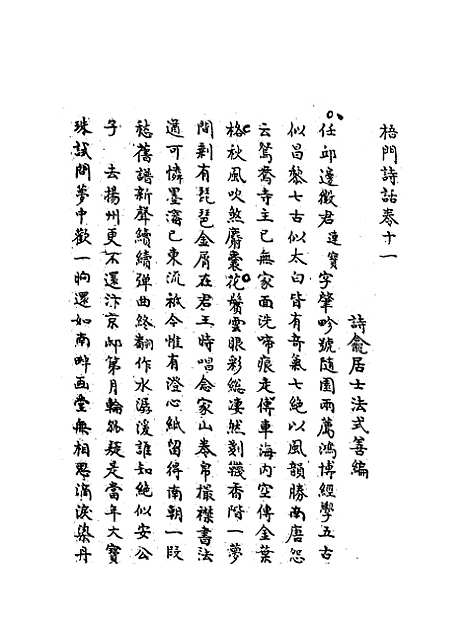 梧門詩話卷十一
詩龕居士法式善編
任邱邊徵君連寶字肇畛號隨園兩薦鴻博經學五古
似昌黎七古似太白皆有奇氣七絶以風韻勝南唐怨
云鴛鴦寺主已無家面洗啼痕走傳車海内空傳金葉
格秋風吹煞麝囊花鬢雲眼彩總凄然剗襪香階一夢
間剩有琵琶金屑在君王時唱念家山卷帛撮襟書法
遒可憐墨瀋已東流祇今惟有澄心紙留得南朝一段
愁舊譜新聲續續弹曲終翻作水潺湲誰知絶似安公
子 去揚州更不還汴京邸第月輪斜疑是當年大寶
珠試問夢中歡一晌還如南畔画堂無相思滴淚染丹